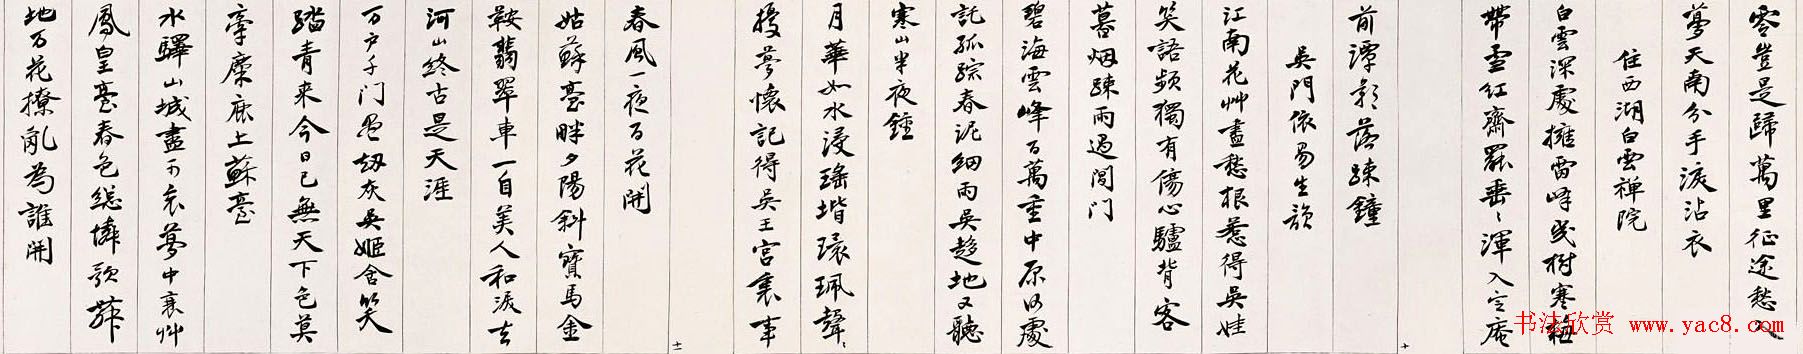 零豈是歸萬里征途愁入
夢天南分手淚沾衣
住西湖白雲禅院
白雲深處擁雷峰幾樹寒梅
帶雪紅齋罷垂〻渾入定庵
十
前潭影落疎鐘
吳門依易生韻
江南花艸盡愁根惹得吳娃
笑語頻獨有傷心驢背客
暮烟疎雨過閶门
碧海雲峰百萬重中原何處
託孤踪春泥細雨吳趨地又聽
寒山半夜鐘
月華如水浸瑤堦環珮聲〻
擾夢懷記得吳王宮裏事
十一
春風一夜百花開
姑蘇臺畔夕陽斜寶馬金
鞍翡翠車一自美人和淚去
河山終古是天涯
万户千门盡劫灰吳姬含笑
踏青来今日已無天下色莫
牽麋鹿上蘇臺
水驛山城盡可哀夢中衰艸
鳳皇臺春色總憐歌舞
地万花撩亂為誰開
书法欣赏 www.yac8.com